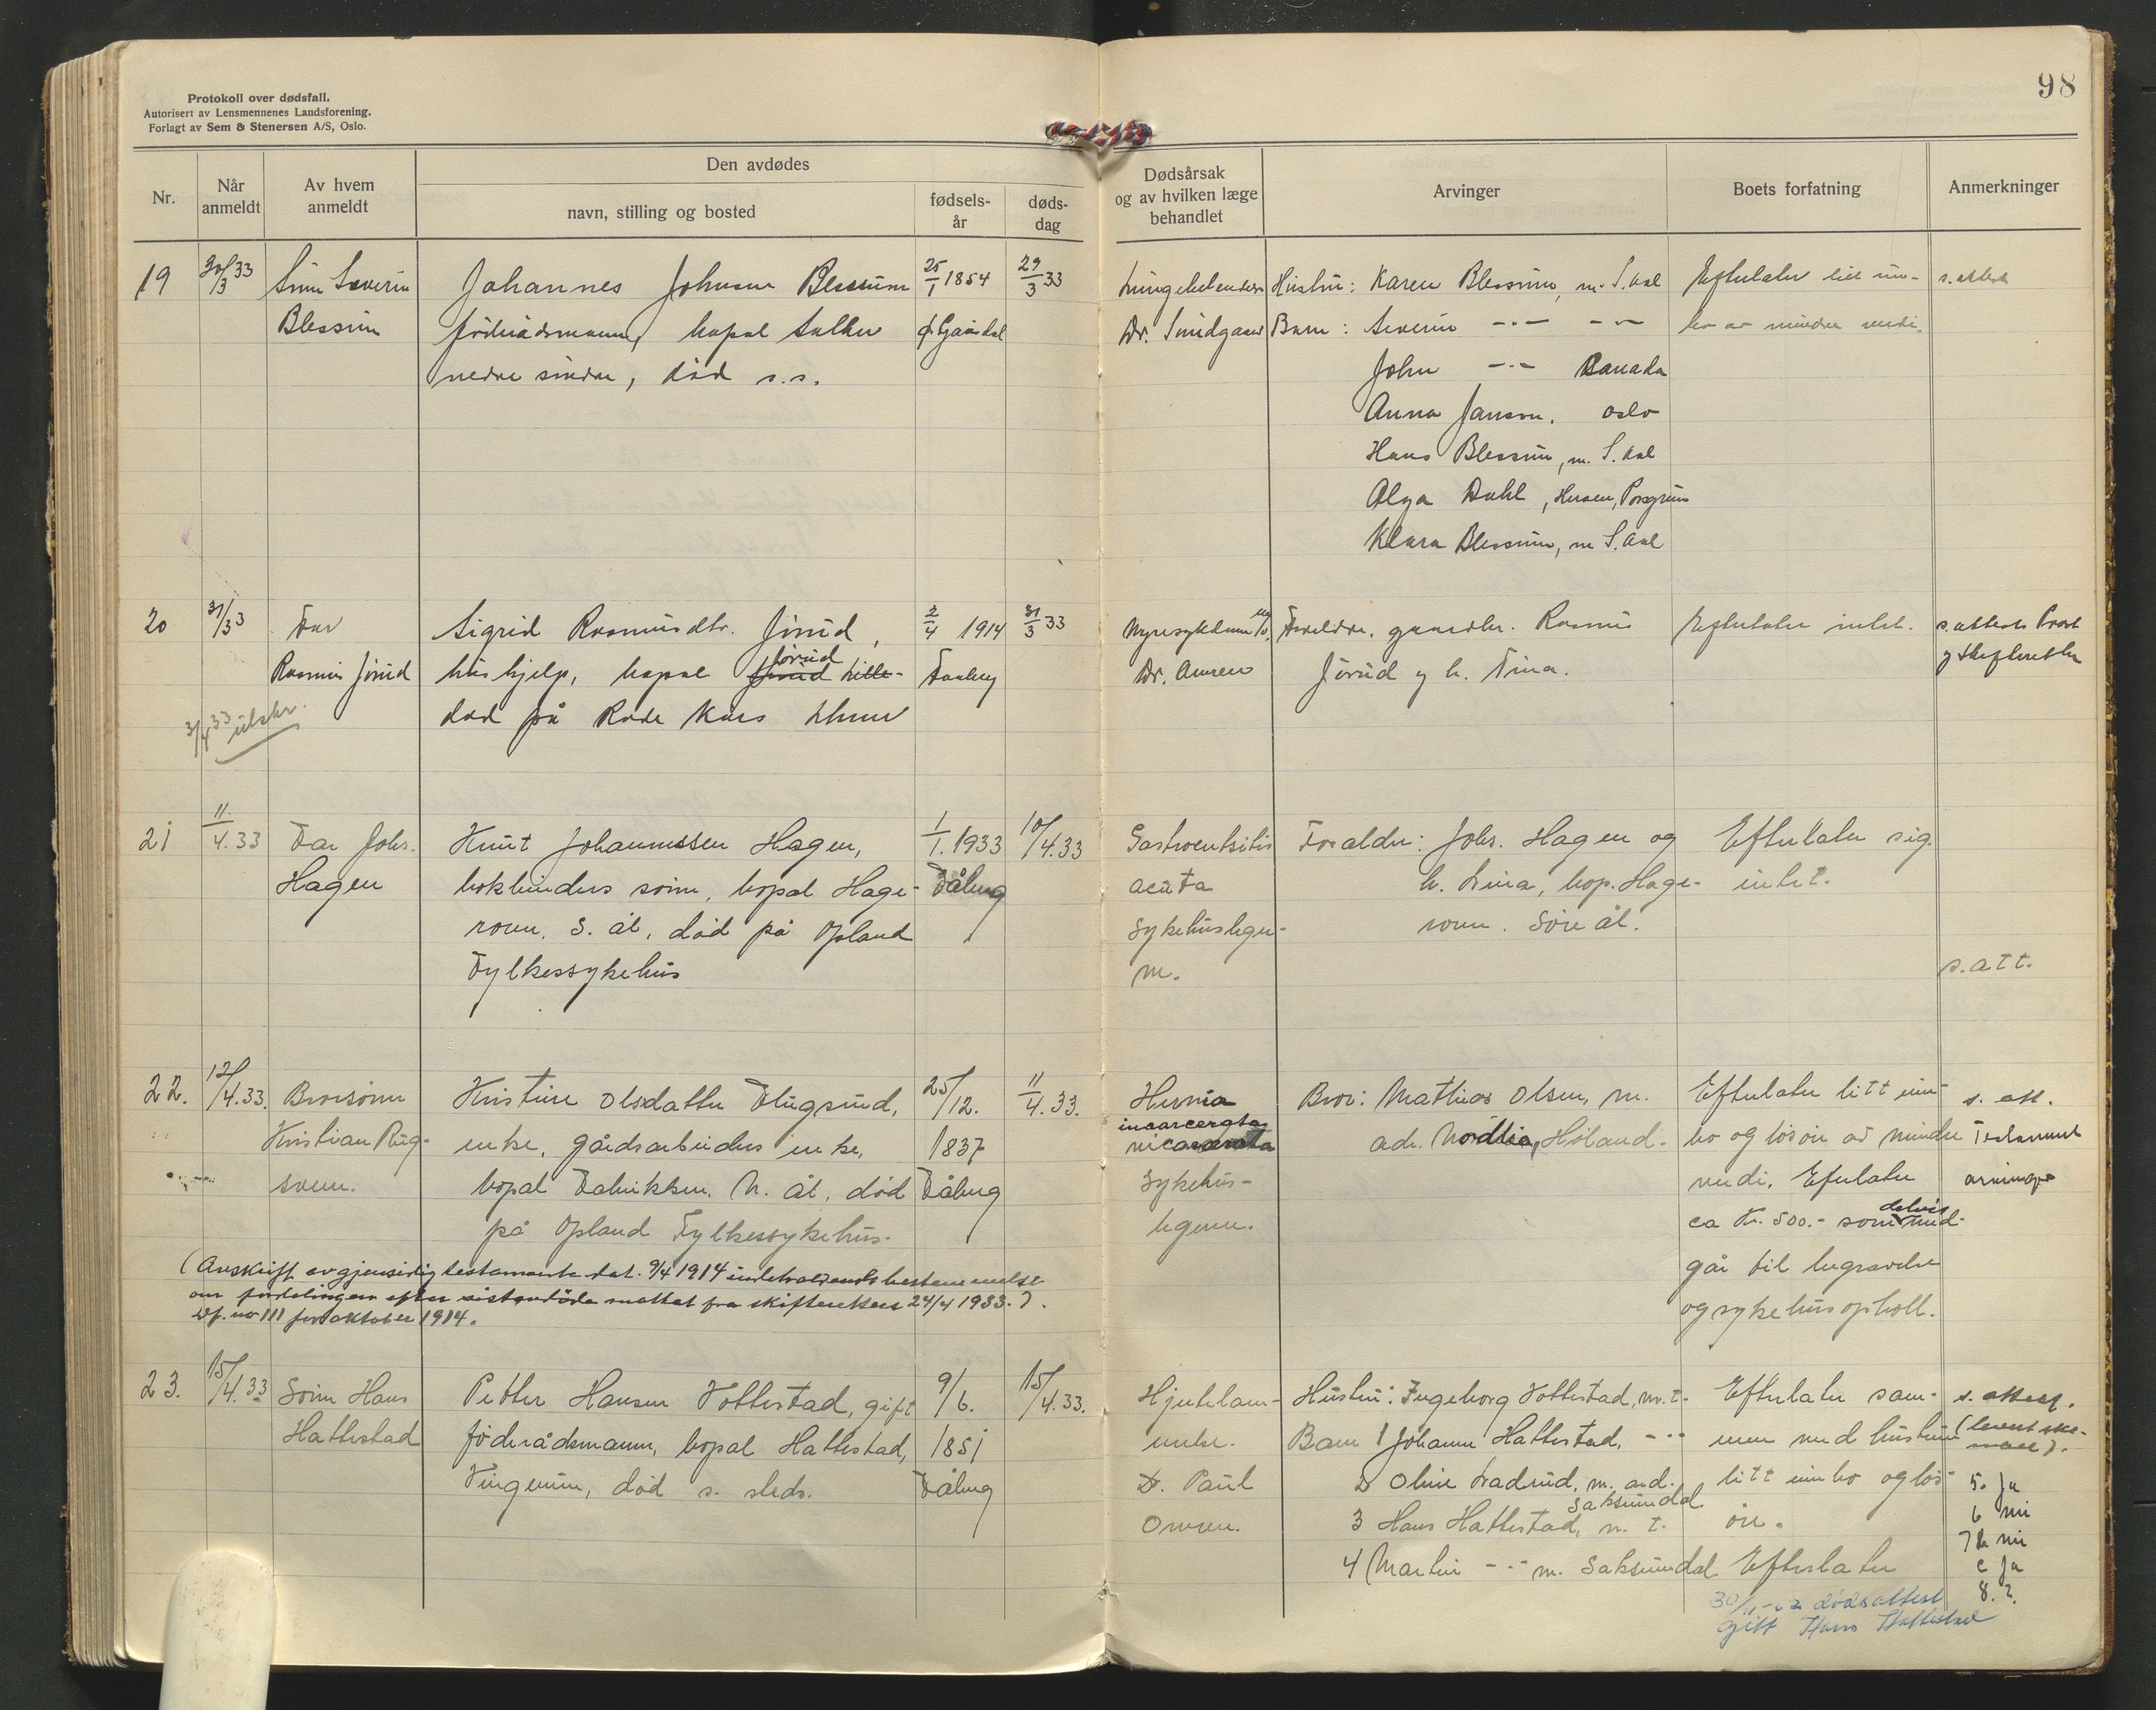 98
Protokoll over dødsfall.
Autorisert av Lensmennenes Landsforening.
Forlagt av Sem & Stenersen A/S, Oslo.
Nr.
Når anmeldt
Av hvem anmeldt
Den avdødes
navn, stilling og bosted
fødsels-år
døds-dag
Dødsårsak
og av hvilken læge
behandlet
Arvinger
Boets forfatning
Anmerkninger
19
30/3 33
Severin
Blessum
Johannes Johnsen Blessum
föderådsmann, bopæl
nedre søndre, död s.s.
25/1 1854
29/3 33
Lungebetendelse
Dr.
Hustru: Karen Blessum, m. S. Aal
Barn: Severin -"- -"-
John -"- Canada
Anna Jansen, Oslo
Hans Blessum, m. S. Aal
Olga Dahl, Porsgrunn
Klara Blessum, m S. Aal
Efterlater litt inn-
bo av mindre verdi.
s. attest
20
31/3 33
Far
Rasmus Jørud
3/4 33 utskr.
Sigrid Rasmusdtr. Jørud,
hushjelp, bopæl Jørud Lille-
död på Röde Kors
2/4 1914
Faaberg
31/3 33
Nyresykdom
Dr. Aunsen
Foreldre, gaardbr. Rasmus
Jörud og h. Tina.
Efterlater intet.
s. attest
og skifteretten
21
11/4.33
Far Johs.
Hagen
Knut Johannessen Hagen,
bokbinders sönn, bopæl Hage-
roen, S. ål, död på Opland
Fylkessykehus
1/1.1933
Fåberg
10/4.33
Gastroenteritis
acuta
Sykehuslegen-
m.
Foraldre: Johs. Hagen og
h. Lina, bop. Hage-
roen. Söre ål.
Efterlater sig
intet.
s. att.
22.
12/4.33.
Brorsönn
Kristian Rug-
sveen.
Kristine Olsdatter Flugsrud,
enke, gårdsarbeiders enke,
bopæl Fabrikken. N. ål, död
på Opland Fylkessykehus.
25/12.
1837
Fåberg
11/4.33.
Hernia
incarcerata
Sykehus-
legene.
Bror: Mathias Olsen, m.
adr. Nordlia, Höland.
Efterlater litt inn-
bo og lösöre av mindre
verdi. Efterlater
ca kr. 500.- som delvis med-
går til begravelse
og sykehusophold.
s. att.
Testament
(Avskrift av gjensidig testamente dat. 9/4 1914 indeholdende bestemmelse
om fordelingen efter sistavdöde mottat fra skifteretten 24/4 1933.).
Df. no 111 for oktober 1914.
23.
15/4.33
Sönn Hans
Hattestad
Petter Hansen Hattestad, gift
föderådsmann, bopæl Hattestad,
Vingrom, död s. steds.
9/6.
1851
Fåberg
15/4.33.
Hjertelam-
melse.
Dr. Paul
Owren.
Hustru: Ingeborg Hattestad, m. t.
Barn 1 Johann Hattestad, -"-
2 Oline Ladrud, m. ad. Saksumdal
3 Hans Hattestad, m. t.
4 Martin -"- m. Saksumdal
Efterlater sam-
men med hustruen
litt innbo og lös-
öre.
Efterlater
s. attest.
5. ja
6 nei
7 b nei
c ja
8. ?
dödsattest
gitt Hans Hattestad